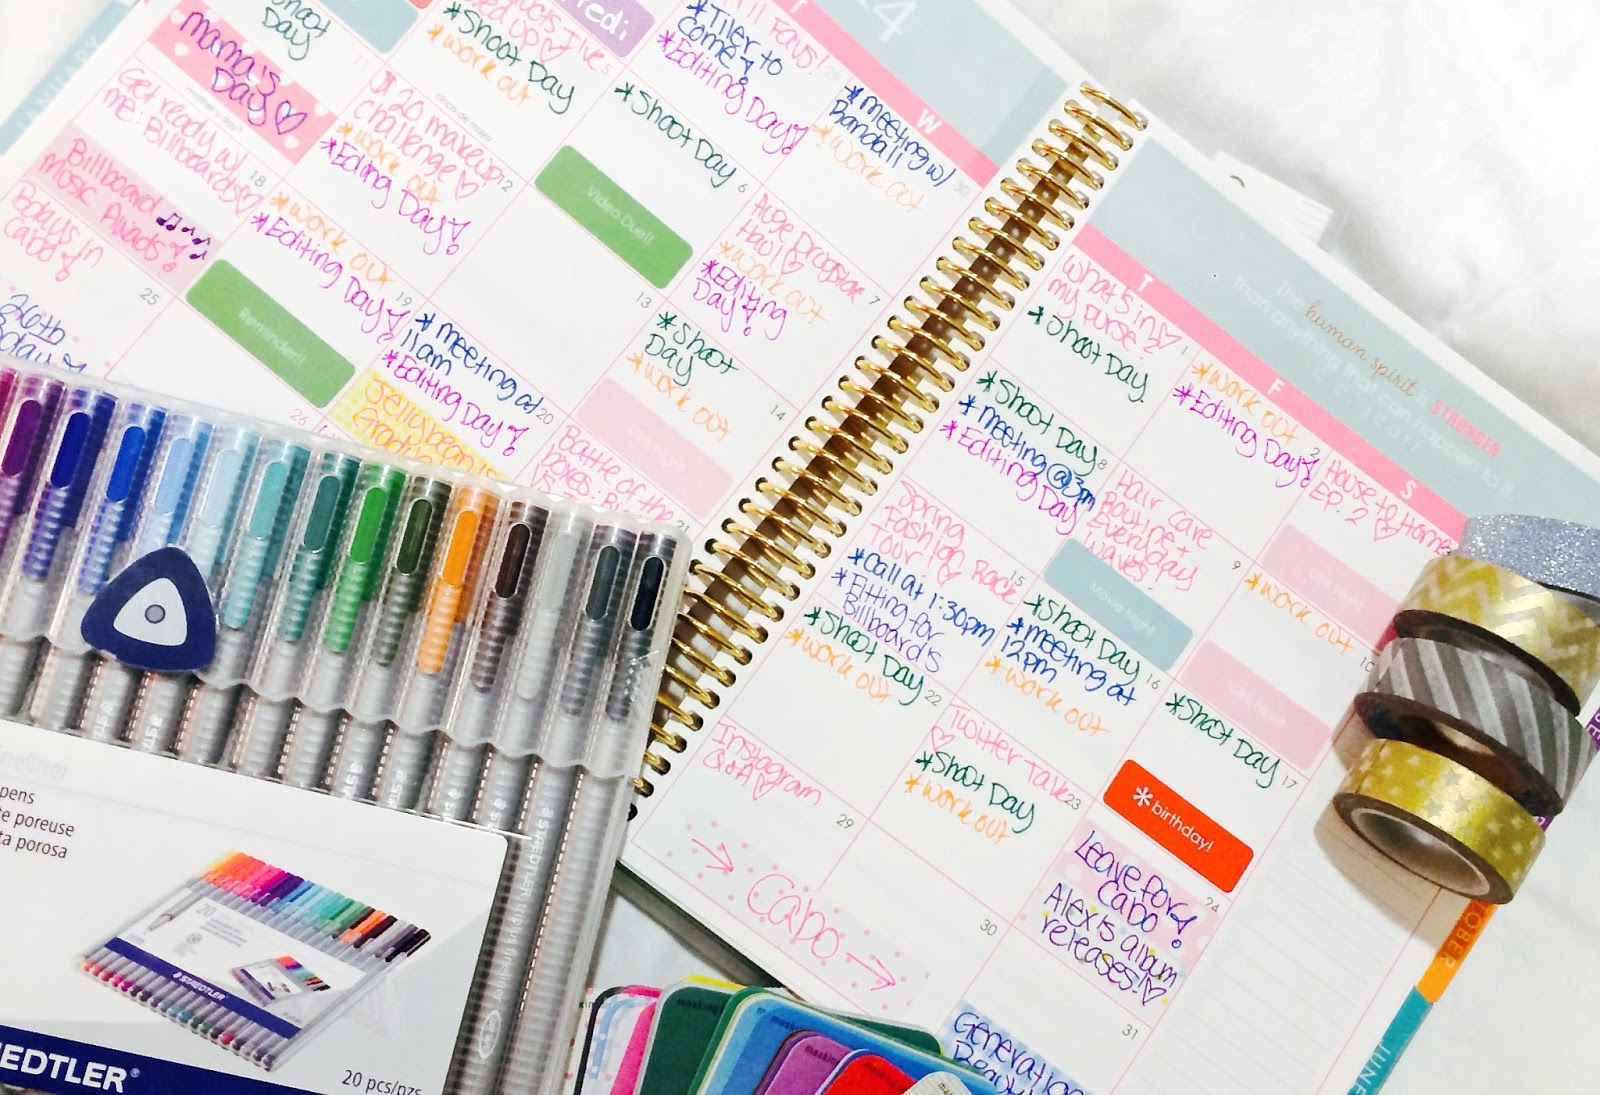 JANUARY
Shoot
Day
Mama's
Day
mother's day
11
*Shoot Day
*Work out
cinco de mayo
5
*Tiler to
come!
*Editing Day!
29
*Meeting w/
Randall
*Work out
30
W
4
*Shoot Day
6
Get ready w/
me: Billboards
18
$20 makeup
challenge
*Work out
*Editing Day!
12
Video Due!!
13
Huge Drugstore
Haul
*Work out
*Editing
Day!
7
Billboard
Music Awards!
Bdays in
Cabo!
25
*Work out
*Editing Day!
19
Reminder!!
26
26th
*Meeting at
11am
*Editing Day!
20
*Shoot
Day
*Work out
14
Jellybean's
Battle of the
Boxes:
VS
21
The human spirit is STRONGER
than anything that can happen to it.
T
F
S
What's in
my purse?
*Shoot Day
1
*Work out
*Editing Day!
2
House to Home
EP. 2
*Shoot Day
*Meeting @ 3pm
*Editing Day
8
Hair Care
Routine +
Everyday
Waves
9
*Work out
10
Spring
Fashion Rack
Tour
*Call at 1:30pm
*Fitting for
Billboards
15
Movie Night
*Shoot Day
*Meeting at
12pm
*Work out
16
*Shoot Day
17
*Shoot Day
*Work out
22
Twitter Talk
*Shoot Day
*Work out
23
*birthday!
24
Instagram
Q&A
29
Leave for
Cabo!
Alexis album
releases!
30
→ Cabo →
31
Generation
Beauty
JUNE
pens
te poreuse
ta porosa
STAEDTLER
20 pcs/pzs